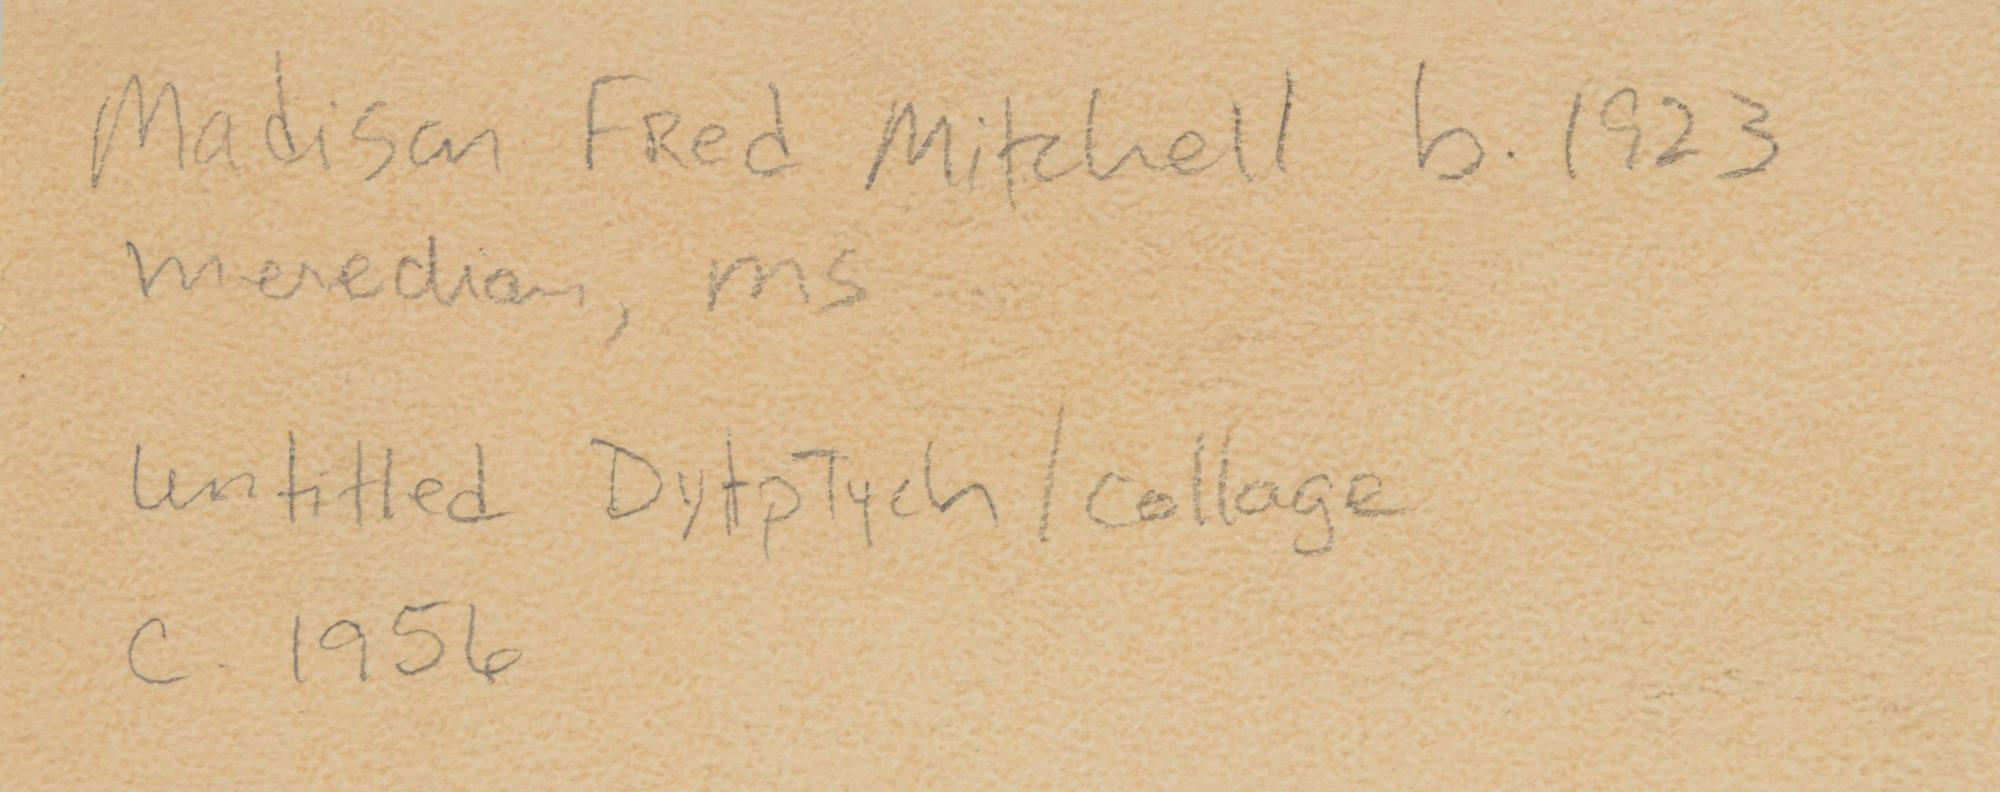 Madison Fred Mitchell b. 1923
Meredian, MS
untitled DytpTych / collage
c. 1956